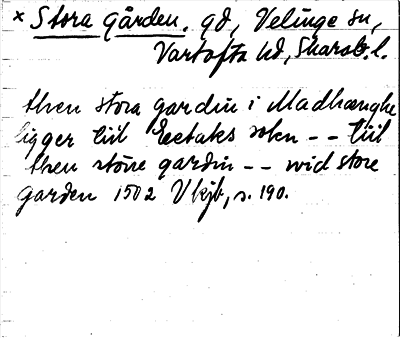 × Stora Gården. gd, Velinge sn,
Vartofta hd, Skarab. l.
then stora gardin i Madhænghe
ligger tiil Eeetaks sokn -- tiil
then støre gardin -- wid store
garden 1502 Vkjb, s. 190.